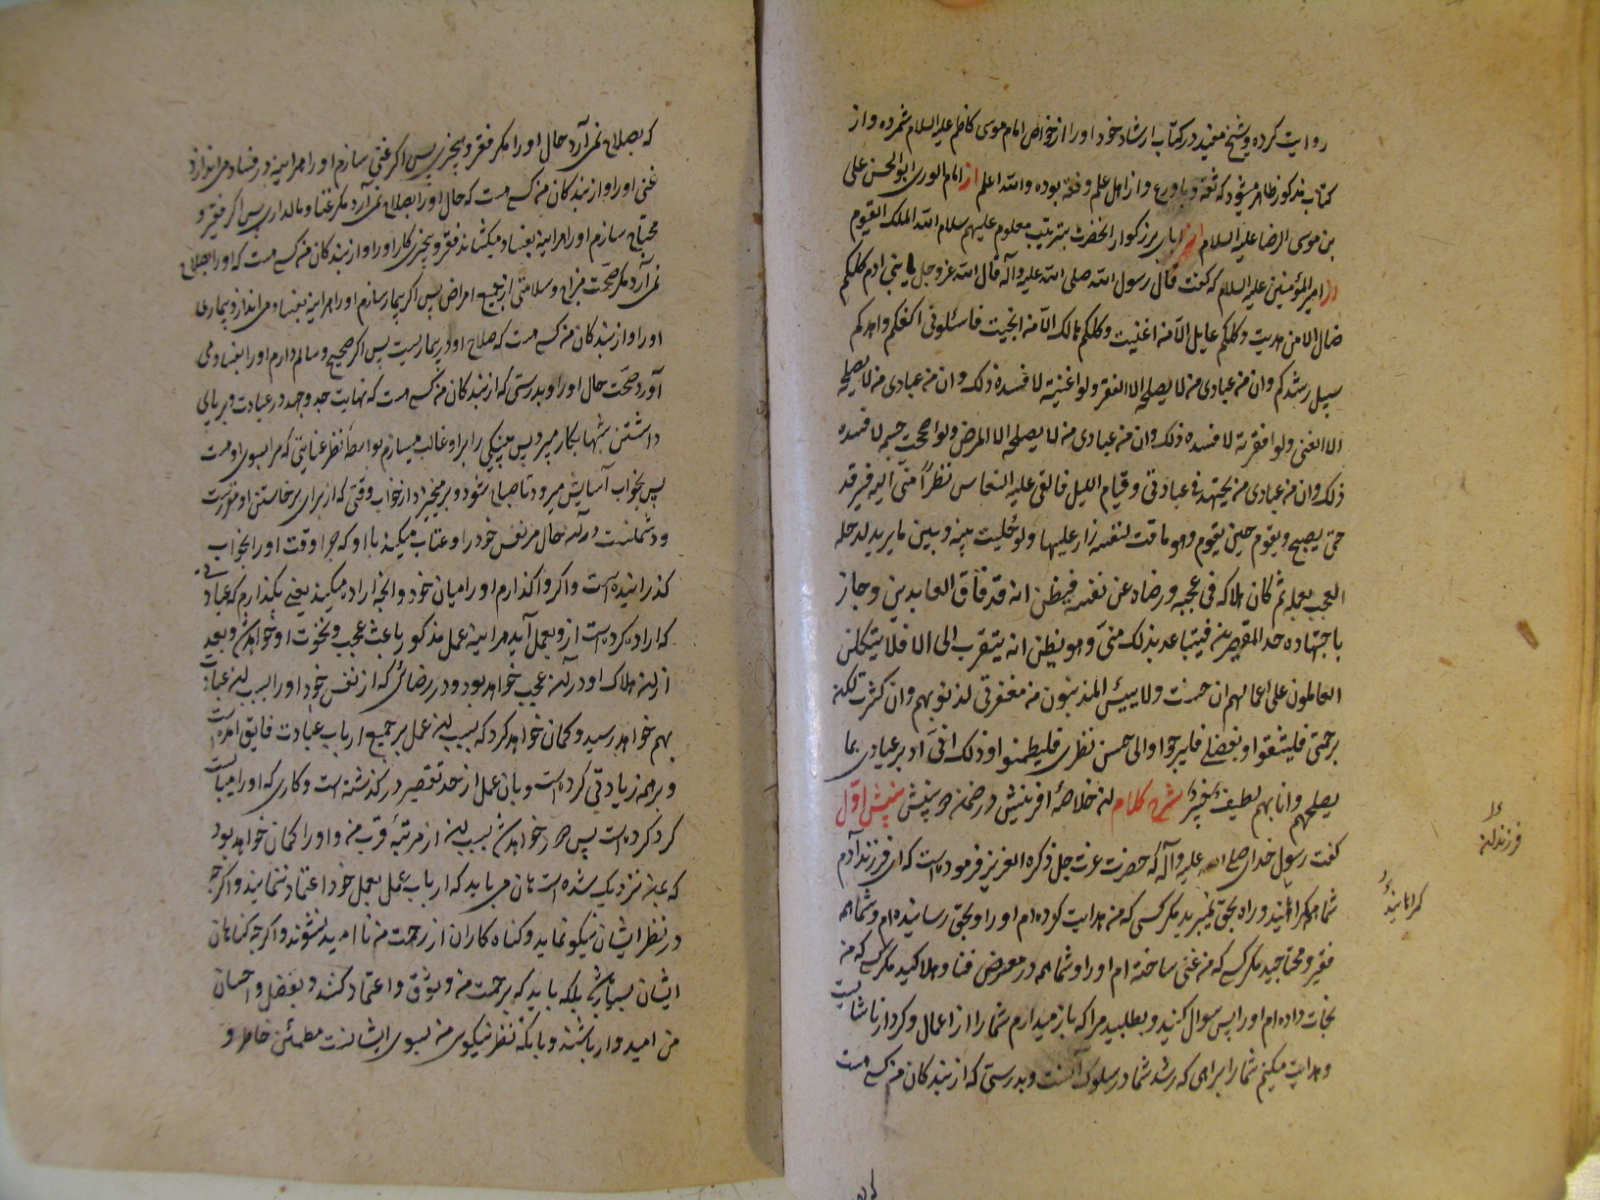 روایت کرده و شیخ مفید در کتاب ارشاد خود او را از خواص امام موسی کاظم علیه السلام شمرده و از
کتاب مذکور ظاهر میشود که ثقه و باورع و از اهل علم و فقه بوده والله اعلم از امام الوری ابو الحسن علی
بن موسی الرضا علیه السلام از آبای بزرکوار انحضرت بترتیب معلوم علیهم سلام الله الملک القیوم
از امیر المؤمنین علیه السلام که کفت قال رسول الله صلی الله علیه وآله قال الله عز وجل یا بنی ادم کلکم
ضال الا من هدیت وکلکم عایل الا من اغنیت وکلکم هالک الا من انجیت فاسئلونی اکفکم واهدکم
سبیل رشدکم وان من عبادی من لا یصلحه الا الفقر ولو اغنیته لافسده ذلک وان من عبادی من لا یصلحه
الا الغنی ولو افقرته لافسده ذلک وان من عبادی من لا یصلحه الا المرض ولو اصححت جسمه لافسده
ذلک وان من عبادی من یجتهد فی عبادتی وقیام اللیل فالقی علیه النعاس نظراً منّی الیه فیرقد
حتی یصبح ویقوم حین یقوم وهو ماقت لنفسه زار علیها ولو خلیت بینه وبین ما یرید لدخله
العجب بعمله ثم کان هلاکه فی عجبه ورضاه عن نفسه فیظن انه قد فاق العابدین وجاز
باجتهاده حد المقصرین فیتباعد بذلک منّی وهو یظن انه یتقرب الی الا فلا یتکلن
العاملون علی اعمالهم ان حسنت ولا ییئس المذنبون من مغفرتی لذنوبهم وان کثرت لکن
برحمتی فلیثقوا وبفضلی فلیرجوا والی حسن نظری فلیطمئنوا وذلک انی ادبر عبادی بما
یصلحهم وانا بهم لطیف خبیر شرح کلام ان خلاصهٔ افرینش در ضمن دو بینش بینش اوّل
کفت رسول خدای صلی الله علیه وآله که حضرت عزت جل ذکره العزیز فرموده است که ای فرزند آدم
فرزندان
شما همه کمراهید و راه بحق نمیبرید مکر کسی که من هدایت کرده ام او را و بحق رسانیده ام و شما همه
کمراهانید
فقیر و محتاجید مکر کسی که من غنی ساخته ام او را و شما همه در معرض فنا و هلاکید مکر کسی که من
نجات داده ام او را پس سوال کنید و بطلبید مرا که باز میدارم شما را از اعمال و کردار ناشایست
و هدایت میکنم شما را براهی که رشد شما در سلوک آنست و بدرستی که از بندکان من کسی هست
که بصلاح نمی آرد حال او را مکر فقر و بیچیزی پس اکر غنی سازم او را هر اینه در فساد می اندازد
غنی او را و از بندکان من کسی هست که حال او را بصلاح نمی آرد مکر غنا و مالداری پس اکر فقیر و
محتاج سازم او را هر اینه بفساد میکشاند فقر و بیچیزی کار او را و از بندکان من کسی هست که او را بصلاح
نمی آرد مکر صحّت مزاج و سلامتی از جمیع امراض پس اکر بیمار سازم او را هر اینه بفساد می اندازد بیماری
او را و از بندکان من کسی هست که صلاح او در بیماریست پس اکر صحیح و سالم دارم او را بفساد می
آورد صحّت حال او را و بدرستی که از بندکان من کسی هست که نهایت جد و جهد در عبادت و برپای
داشتن شبها بکار میبرد پس پینکی را بر او غالب میسازم بواسطهٔ نظر عنایتی که مرا بسوی او هست
پس بخواب آسایش میرود تا صباح شود و بر میخیزد از خواب وقتی که از برای برخاستن او مقررست
و دشمنست در آن حال مر نفس خود را و عتاب میکند با او که چرا وقت او را بخواب
کذرانیده است و اکر واکذارم او را میان خود و انچه اراده میکند یعنی بکذارم که عبادتی
که اراده کرده است ازو بعمل آید هر اینه عمل مذکور باعث عجب و نخوت او خواهد شد و بعد
از ان هلاک او در آن عجب خواهد بود و در رضائی که از نفس خود او را بسبب ان عبادت
بهم خواهد رسید و کمان خواهد کرد که بسبب ان عمل بر جمیع ارباب عبادت فایق آمده است
و بر همه زیادتی کرده است و بان عمل از حد تقصیر در کذشته است و کاری که او را میبایست
کرد کرده است پس دور خواهد شد بسبب ان از مرتبهٔ قرب من و او را کمان خواهد بود
که بمن نزدیک شده است هان می باید که ارباب عمل بعمل خود اعتماد ننمایند و اکرچه
در نظر ایشان نیکو نماید و کناه کاران از رحمت من نا امید نشوند و اکرچه کناهان
ایشان بسیار باشد بلکه باید که برحمت من وثوق و اعتماد کنند و بفضل و احسان
من امیدوار باشند و بانکه نظر نیکوی من بسوی ایشانست مطمئن خاطر و